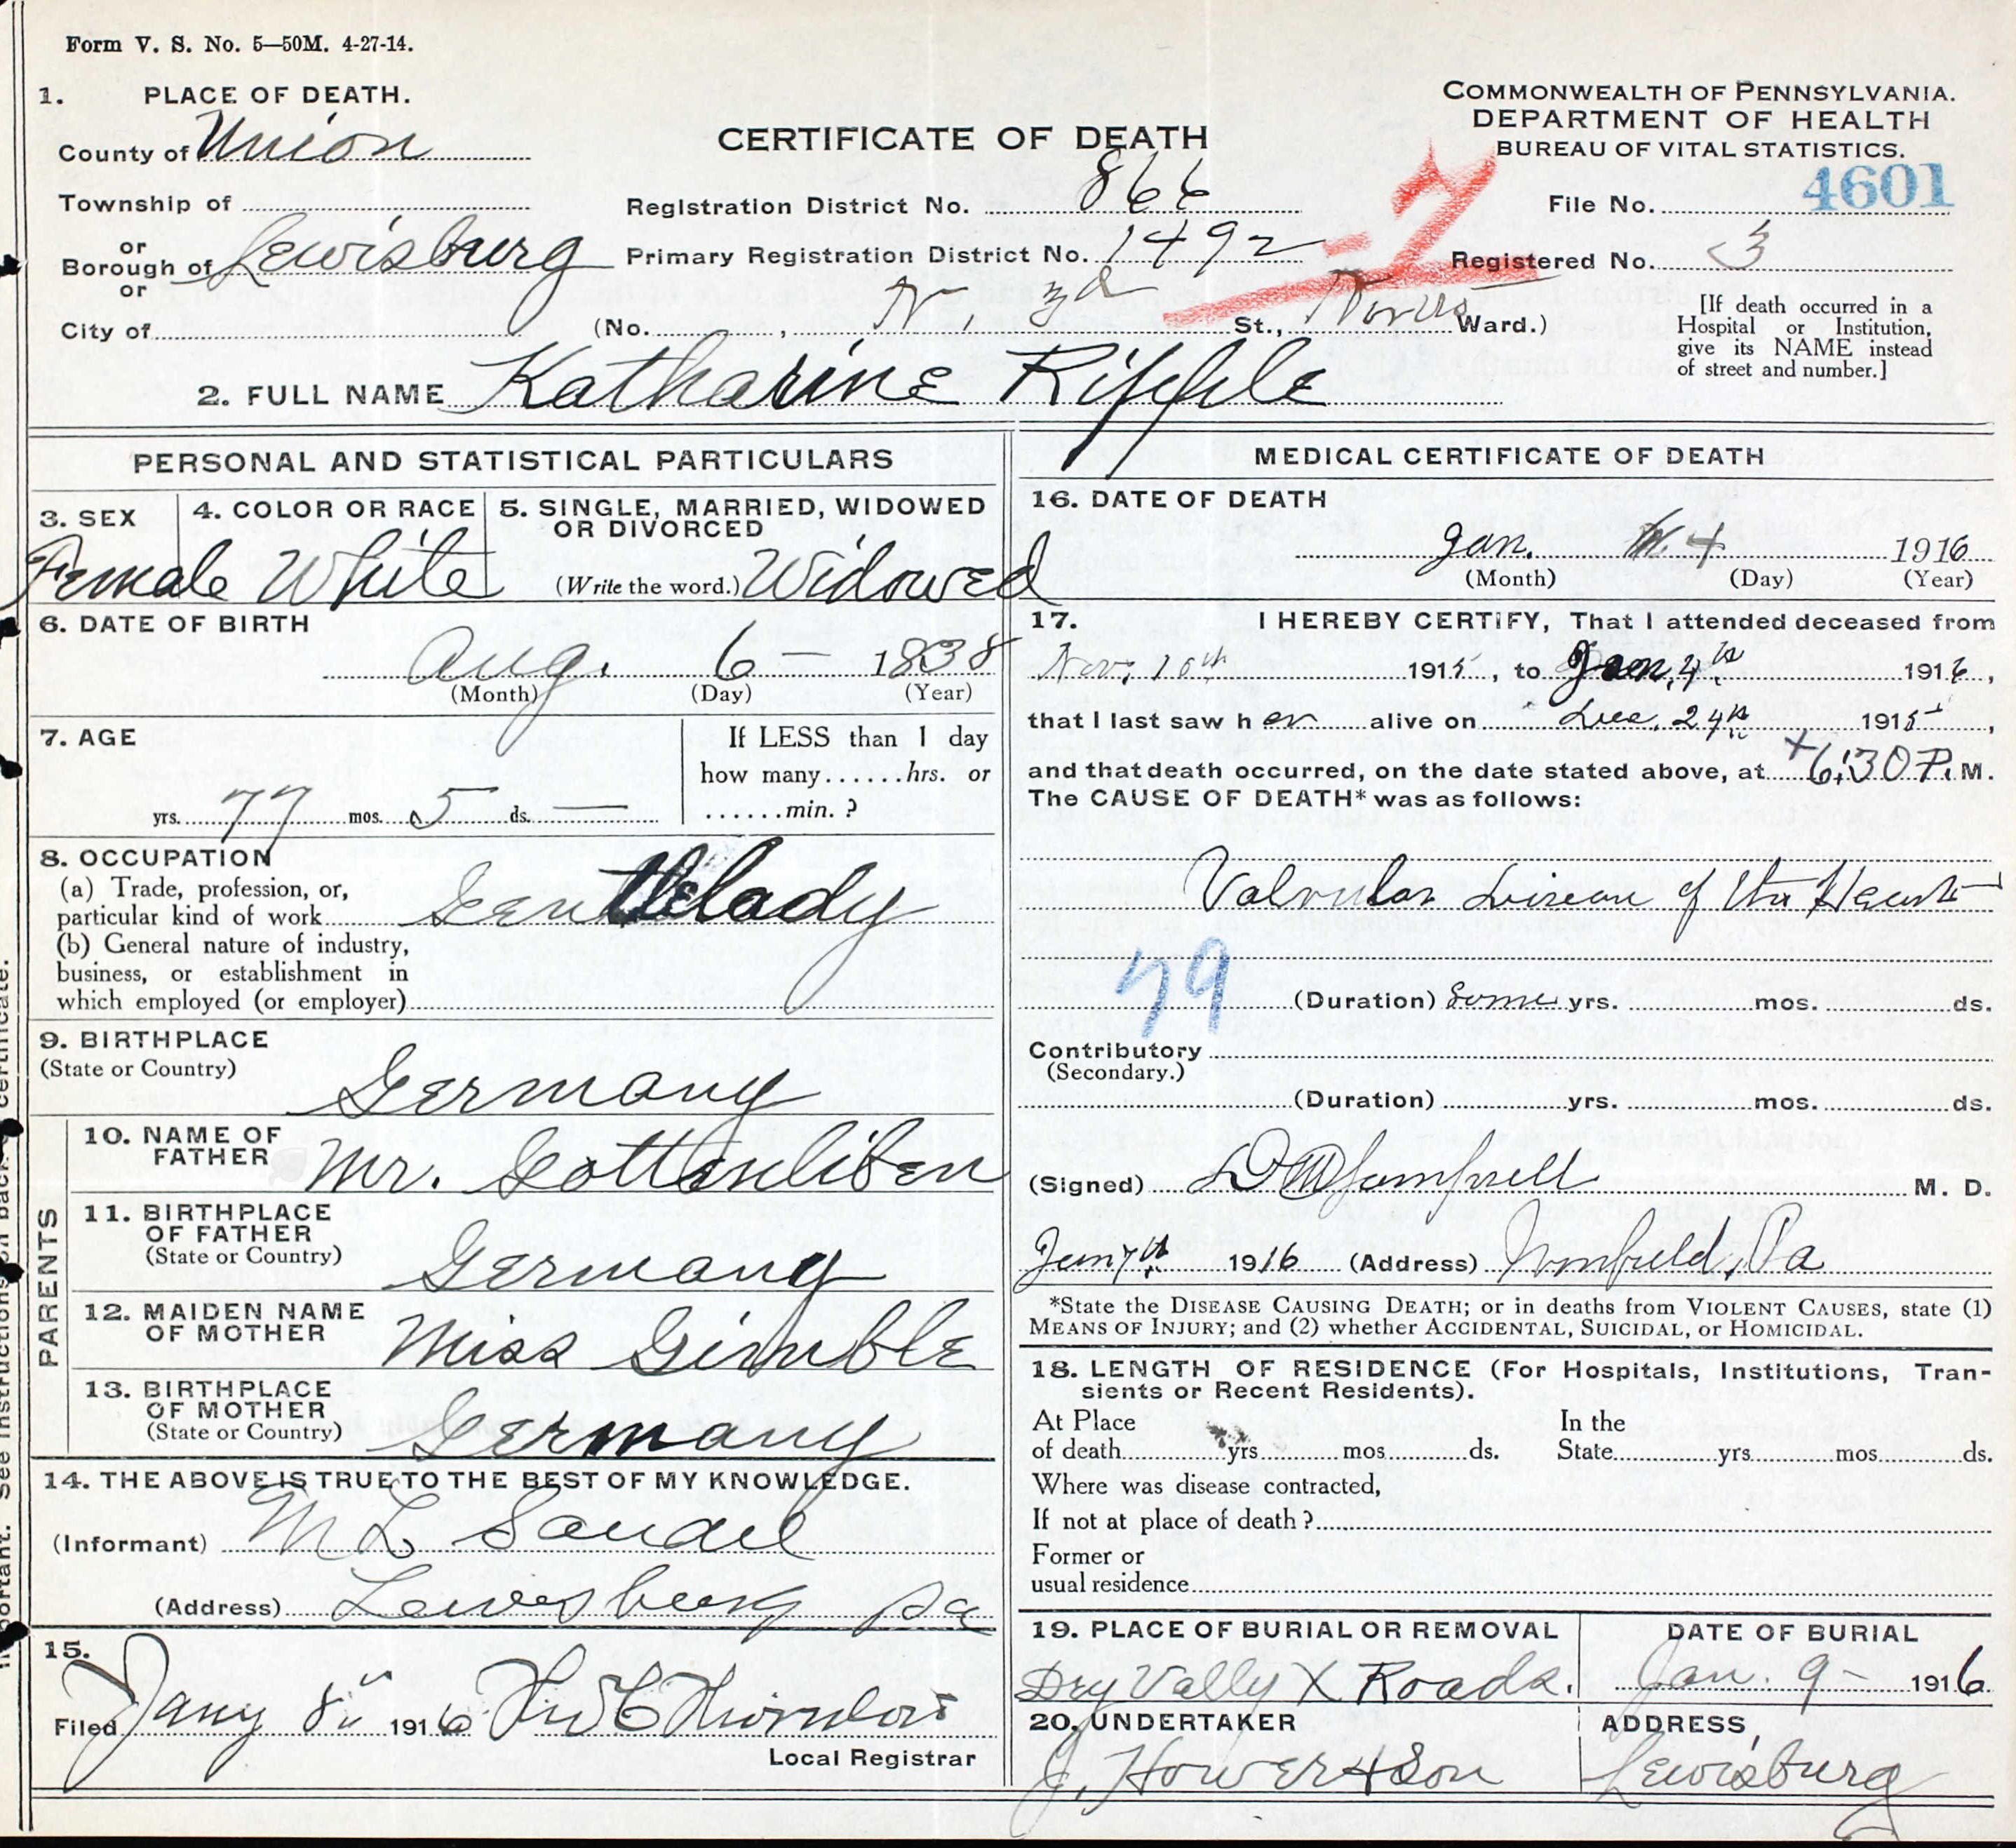 Form V. S. No. 5—50M. 4-27-14.
1. PLACE OF DEATH.
County of Union
Township of
or
Borough of Lewisburg
or
City of
CERTIFICATE OF DEATH
Registration District No. 866
Primary Registration District No. 1492
(No. , N. 3d St., Ward.)
COMMONWEALTH OF PENNSYLVANIA.
DEPARTMENT OF HEALTH
BUREAU OF VITAL STATISTICS.
File No. 4601
Registered No. 3
[If death occurred in a
Hospital or Institution,
give its NAME instead
of street and number.]
2. FULL NAME Katharine Ripple
PERSONAL AND STATISTICAL PARTICULARS
3. SEX
Female
4. COLOR OR RACE
White
5. SINGLE, MARRIED, WIDOWED
OR DIVORCED
(Write the word.) Widowed
6. DATE OF BIRTH
Aug. 6 — 1838
(Month) (Day) (Year)
7. AGE
yrs. 77 mos. 5 ds. —
If LESS than 1 day
how many......hrs. or
......min. ?
8. OCCUPATION
(a) Trade, profession, or,
particular kind of work Gentlelady
(b) General nature of industry,
business, or establishment in
which employed (or employer)
9. BIRTHPLACE
(State or Country)
Germany
PARENTS
10. NAME OF
FATHER Mr.
11. BIRTHPLACE
OF FATHER
(State or Country) Germany
12. MAIDEN NAME
OF MOTHER Miss Gimble
13. BIRTHPLACE
OF MOTHER
(State or Country) Germany
14. THE ABOVE IS TRUE TO THE BEST OF MY KNOWLEDGE.
(Informant) M L Sandel
(Address) Lewisburg Pa
15.
Filed Jany 8" 1916
Local Registrar
MEDICAL CERTIFICATE OF DEATH
16. DATE OF DEATH
Jan. 4 1916
(Month) (Day) (Year)
17. I HEREBY CERTIFY, That I attended deceased from
Nov. 10th 1915, to Jan. 4th 1916,
that I last saw her alive on Dec. 24th 1915,
and that death occurred, on the date stated above, at 6:30 P. M.
The CAUSE OF DEATH* was as follows:
Valvular Disease of the Heart
79
(Duration) Some yrs. mos. ds.
Contributory
(Secondary.)
(Duration) yrs. mos. ds.
(Signed) M. D.
Jan 7th 1916 (Address) Winfield, Pa
*State the DISEASE CAUSING DEATH; or in deaths from VIOLENT CAUSES, state (1)
MEANS OF INJURY; and (2) whether ACCIDENTAL, SUICIDAL, or HOMICIDAL.
18. LENGTH OF RESIDENCE (For Hospitals, Institutions, Tran-
sients or Recent Residents).
At Place
of death yrs mos ds.
In the
State yrs mos ds.
Where was disease contracted,
If not at place of death ?
Former or
usual residence
19. PLACE OF BURIAL OR REMOVAL
Dry Vally X Roads.
DATE OF BURIAL
Jan. 9 — 1916
20. UNDERTAKER
J. Hower & Son
ADDRESS
Lewisburg